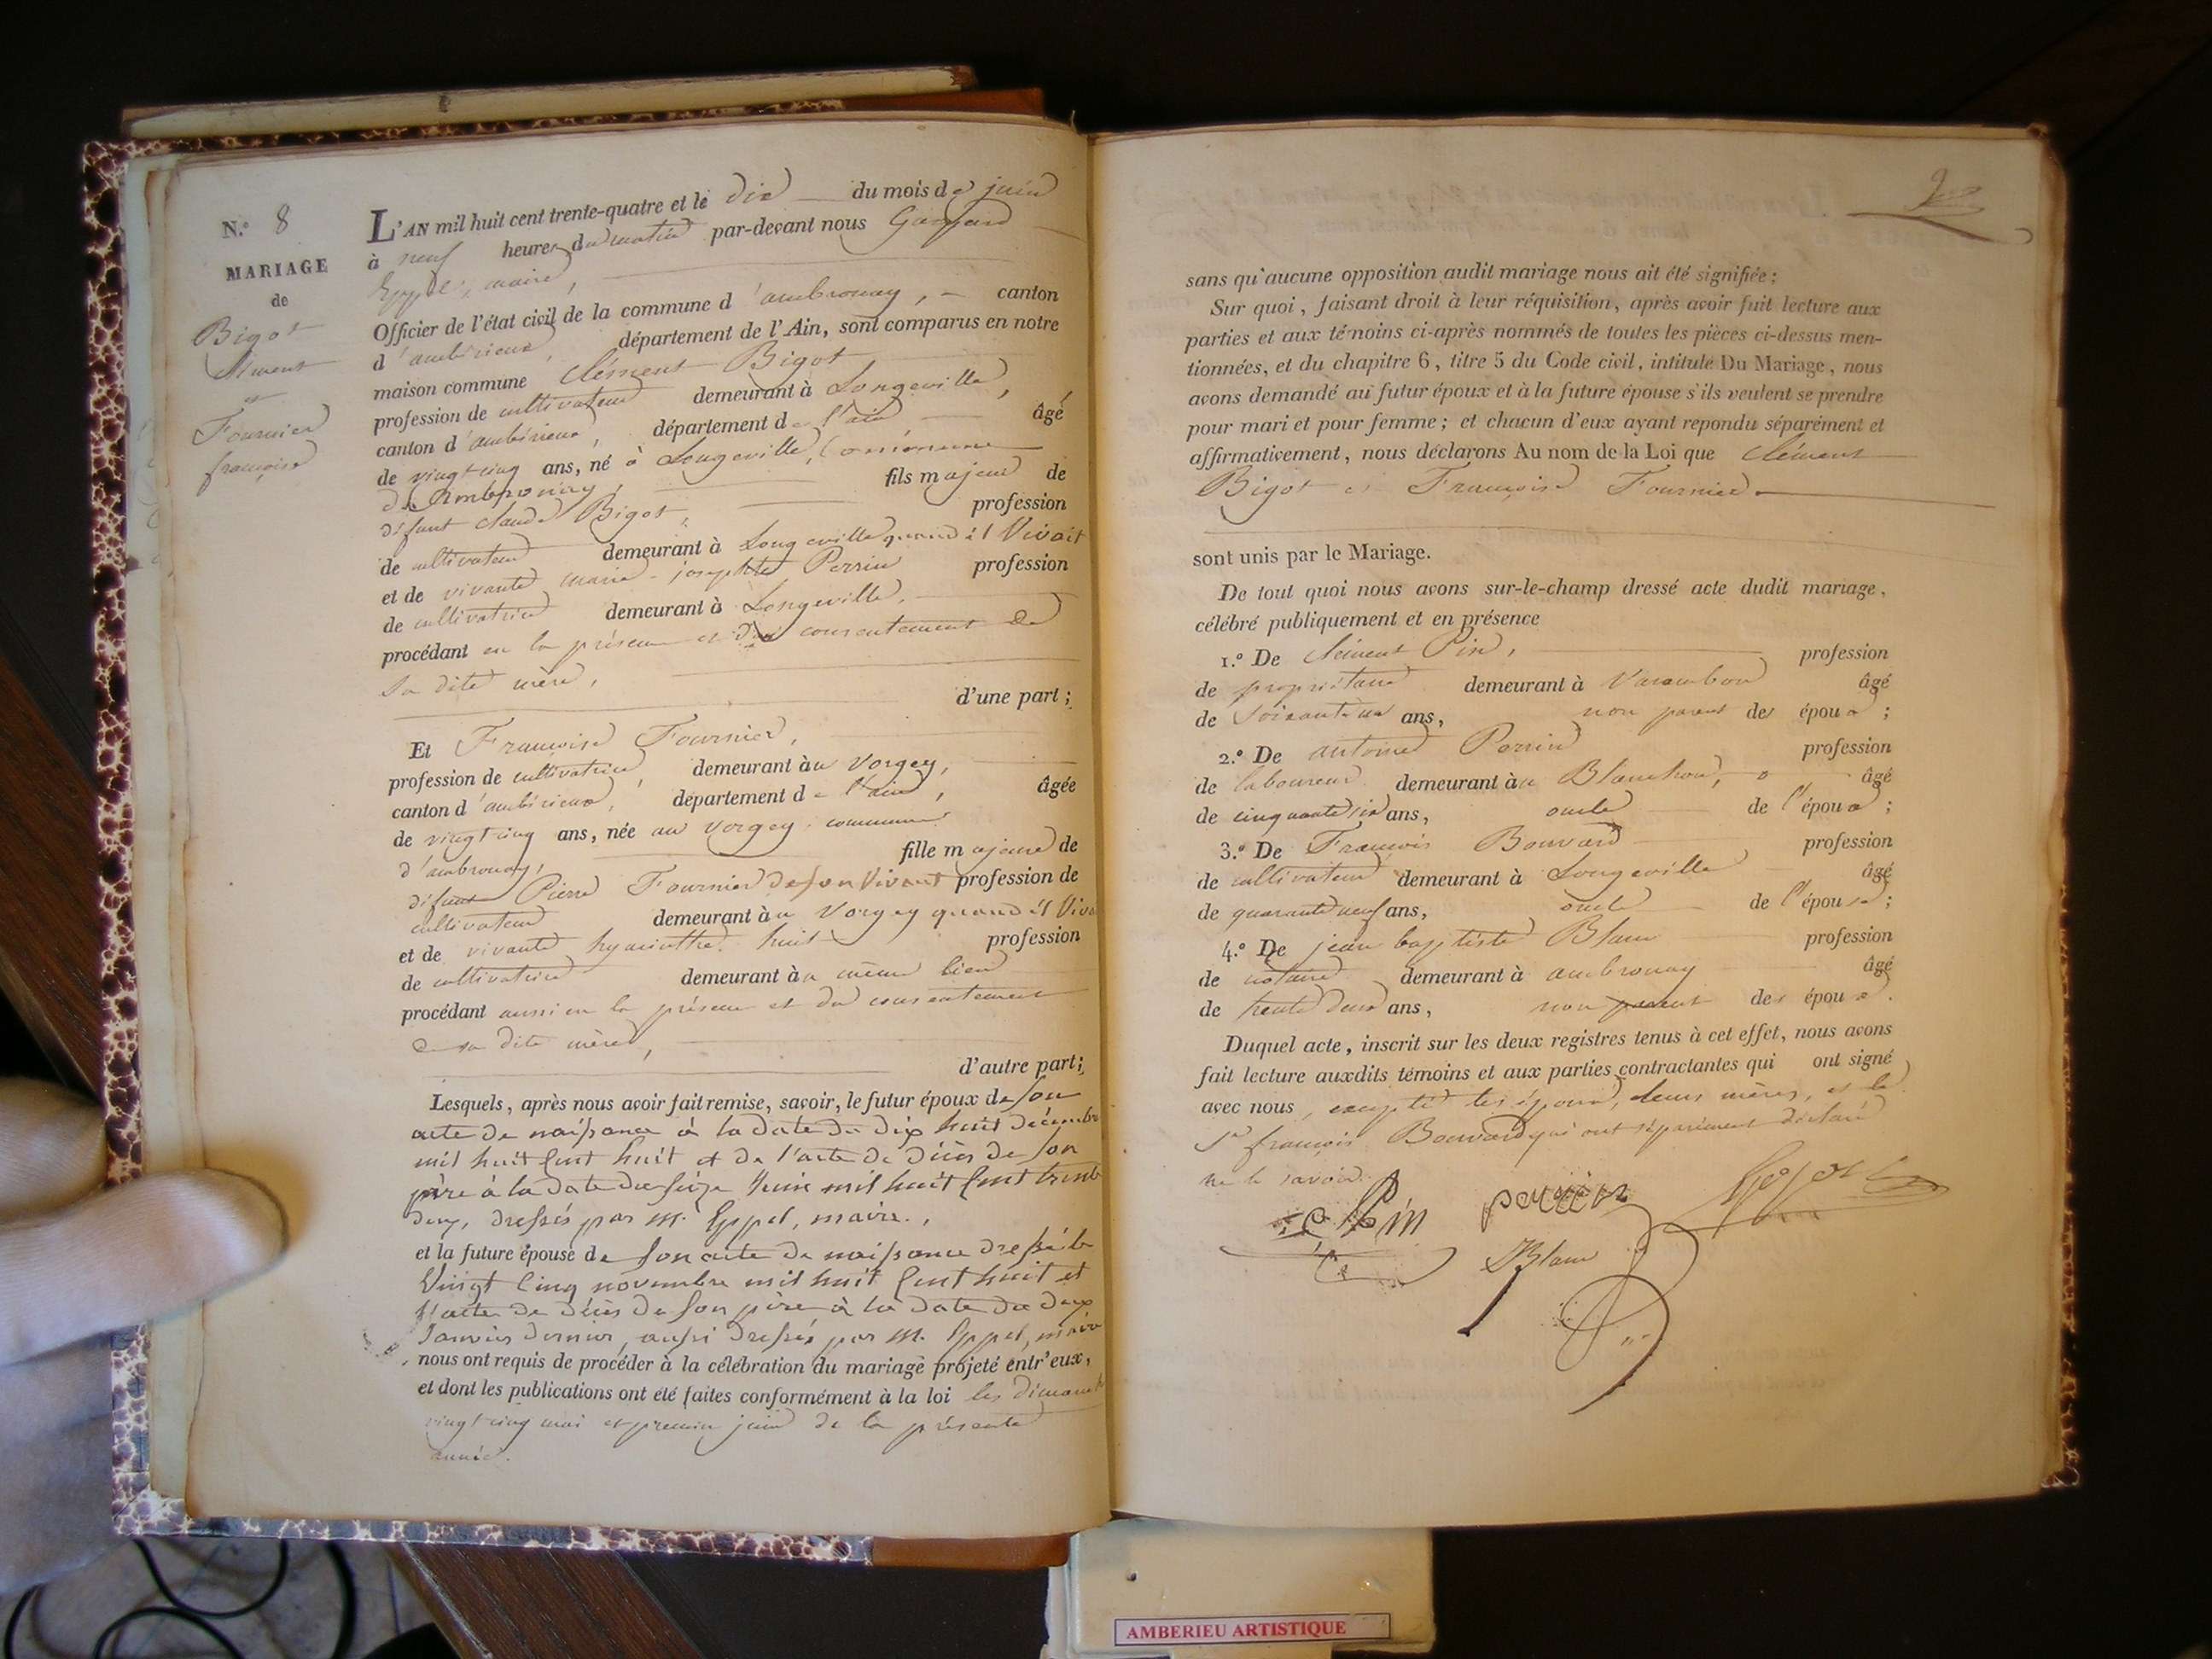 N.° 8
MARIAGE
de
Bigot
Clément
et
Fournier
françoise
L'AN mil huit cent trente-quatre et le dix du mois de juin
à neuf heures du matin par-devant nous Gaspard
Eppel, maire,
Officier de l'état civil de la commune d'ambronay, canton
d'ambérieux, département de l'Ain, sont comparus en notre
maison commune Clément Bigot
profession de cultivateur demeurant à Longeville,
canton d'ambérieux, département de l'ain, âgé
de vingt cinq ans, né à Longeville, Commune
de Ambronay, fils majeur de
défunt claude Bigot, profession
de cultivateur demeurant à Longeville quand il Vivait
et de vivante marie-josephte Perrin profession
de cultivatrice demeurant à Longeville,
procédant en la présence et du consentement de
sa dite mère,
d'une part;
Et Françoise Fournier,
profession de cultivatrice, demeurant au Vorgey,
canton d'ambérieux, département de l'ain, âgée
de vingt cinq ans, née au Vorgey commune
d'ambronay, fille majeure de
défunt Pierre Fournier de son Vivant profession de
cultivateur demeurant au Vorgey quand il Viva
et de vivante hyacinthe huit profession
de cultivatrice demeurant au même lieu
procédant aussi en la présence et du consentement
de sa dite mère,
d'autre part;
Lesquels, après nous avoir fait remise, savoir, le futur époux de son
acte de naissance à la date du dix huit décembre
mil huit Cent huit et de l'acte de décès de son
père à la date du seize Juin mil huit Cent trente
deux, dressés par M. Eppel, maire.,
et la future épouse de son acte de naissance dressé le
Vingt Cinq novembre mil huit Cent huit et
l'acte de décès de son père à la date du deux
Janvier dernier, aussi dressés par M. Eppel, maire
nous ont requis de procéder à la célébration du mariage projeté entr'eux,
et dont les publications ont été faites conformément à la loi les dimanch
vingt cinq mai et premier juin de la présente
année.
sans qu'aucune opposition audit mariage nous ait été signifiée;
Sur quoi, faisant droit à leur réquisition, après avoir fait lecture aux
parties et aux témoins ci-après nommés de toutes les pièces ci-dessus men-
tionnées, et du chapitre 6, titre 5 du Code civil, intitulé Du Mariage, nous
avons demandé au futur époux et à la future épouse s'ils veulent se prendre
pour mari et pour femme; et chacun d'eux ayant repondu séparément et
affirmativement, nous déclarons Au nom de la Loi que Clément
Bigot et Françoise Fournier
sont unis par le Mariage.
De tout quoi nous avons sur-le-champ dressé acte dudit mariage,
célébré publiquement et en présence
1.° De Clément Pin, profession
de propriétaire demeurant à Varambon âgé
de soixante un ans, non parent des époux;
2.° De antoine Perrin profession
de laboureur demeurant au Blanchon, âgé
de cinquante six ans, oncle de l'époux;
3.° De François Bouvard profession
de cultivateur demeurant à Longeville âgé
de quarante neuf ans, oncle de l'épouse;
4.° De jean baptiste Blanc profession
de notaire demeurant à ambronay âgé
de trente deux ans, non parent des époux.
Duquel acte, inscrit sur les deux registres tenus à cet effet, nous avons
fait lecture auxdits témoins et aux parties contractantes qui ont signé
avec nous, excepté les époux, leurs mères, et le
Sr françois Bouvard qui ont séparément déclaré
ne le savoir.
Pin perrin
Blanc
AMBERIEU ARTISTIQUE